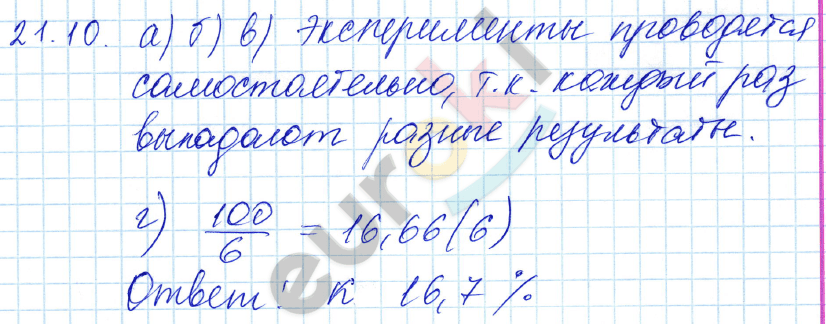 21.10. а) б) в) Эксперименты проводятся
самостоятельно, т.к. каждый раз
выпадают разные результаты.
г) 100/6 = 16,66(6)
Ответ: к 16,7 %
euroki